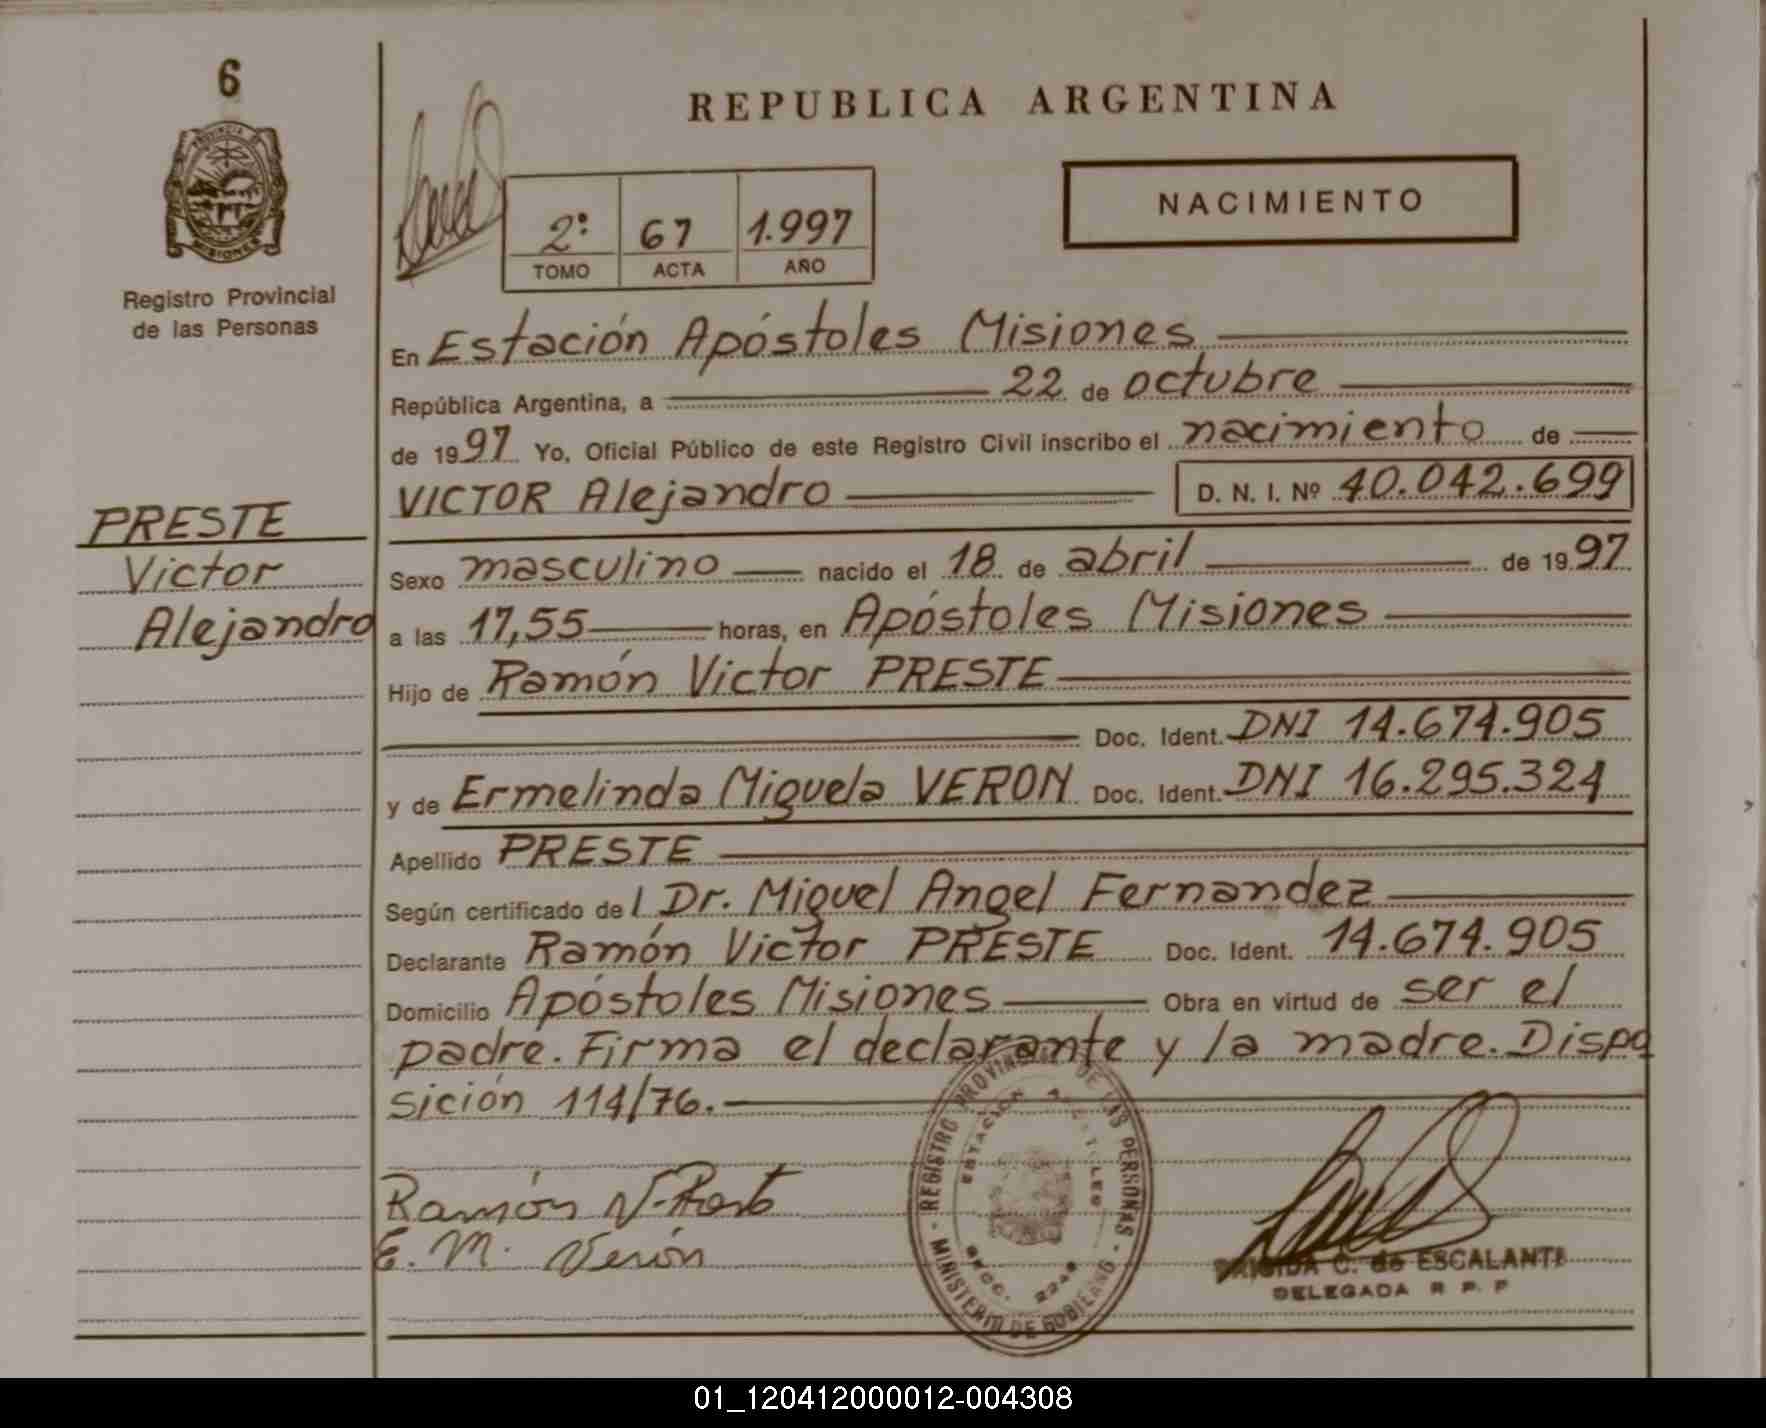 6
PROVINCIA DE
MISIONES
Registro Provincial
de las Personas
PRESTE
Victor
Alejandro
REPUBLICA ARGENTINA
NACIMIENTO
2º 67 1.997
TOMO ACTA AÑO
En Estación Apóstoles Misiones
República Argentina, a 22 de octubre
de 1997 Yo, Oficial Público de este Registro Civil inscribo el nacimiento de
VICTOR Alejandro D. N. I. Nº 40.042.699
Sexo masculino nacido el 18 de abril de 1997
a las 17,55 horas, en Apóstoles Misiones
Hijo de Ramón Victor PRESTE
Doc. Ident. DNI 14.674.905
y de Ermelinda Miguela VERON Doc. Ident. DNI 16.295.324
Apellido PRESTE
Según certificado del Dr. Miguel Angel Fernandez
Declarante Ramón Victor PRESTE Doc. Ident. 14.674.905
Domicilio Apóstoles Misiones Obra en virtud de ser el
padre. Firma el declarante y la madre. Dispo
sición 114/76.
REGISTRO PROVINCIAL DE LAS PERSONAS - MINISTERIO DE GOBIERNO -
ESTACION APOSTOLES
SECC. 2248
Ramón V. Preste
E. M. Verón
BRIGIDA C. de ESCALANTE
DELEGADA R. P. P
01_120412000012-004308